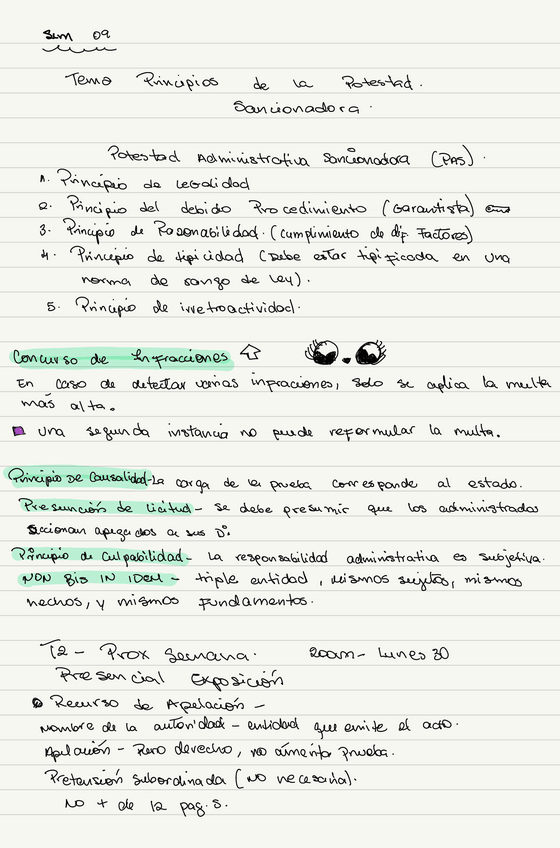 Sem 09
Tema Principios de la Potestad.
Sancionadora.
Potestad Administrativa Sancionadora (PAS).
1. Principio de legalidad
2. Principio del debido Procedimiento (Garantista)
3. Principio de Rasonabilidad. (cumplimiento de dif. Factores)
4. Principio de tipicidad (Debe estar tipificada en una
norma de rango de Ley).
5. Principio de irretroactividad.
Concurso de Infracciones
En caso de detectar varias infraciones, solo se aplica la multa
más alta.
una segunda instancia no puede reformular la multa.
Principio De Causalidad-La carga de la prueba corresponde al estado.
Presunción de Licitud - se debe presumir que los administrados
accionan apegados a sus D°.
Principio de Culpabilidad - La responsabilidad administrativa es subjetiva.
NON BIS IN IDEM - triple entidad, mismos sujetos, mismos
hechos, y mismos fundamentos.
T2 - Prox Semana. Lunes 30
Presencial Exposición
Recurso de Apelación -
Nombre de la autoridad - entidad que emite el acto.
Apelación - Puro derecho, no amerita Prueba.
Pretensión subordinada (No necesaria).
No + de 12 pag.s.